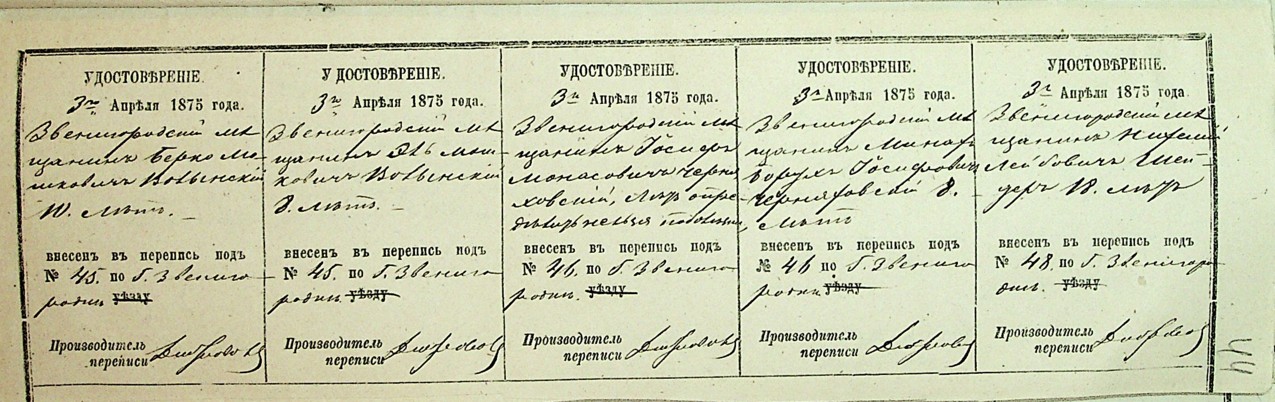 УДОСТОВѢРЕНІЕ.
3го Апрѣля 1875 года.
Звенигородскій мѣ
щанинъ Берко Мо-
шковичъ Волынскій
10. лѣтъ. –
внесенъ въ перепись подъ
№ 45. по г. Звениго
родки уѣзду
Производитель
переписи
УДОСТОВѢРЕНІЕ.
3го Апрѣля 1875 года.
Звенигородскій мѣ
щанинъ Мош-
ковичъ Волынскій
8. лѣтъ. –
внесенъ въ перепись подъ
№ 45. по г. Звениго
родки уѣзду
Производитель
переписи
УДОСТОВѢРЕНІЕ.
3го Апрѣля 1875 года.
Звенигородскій мѣ
щанинъ Іосифъ
Монасовичъ Черня
ховскій, лѣтъ опре
дѣлить нельзя
внесенъ въ перепись подъ
№ 46. по г. Звениго
родки. уѣзду
Производитель
переписи
УДОСТОВѢРЕНІЕ.
3го Апрѣля 1875 года.
Звенигородскій мѣ
щанинъ Монасъ
Борухъ Іосифовичъ
Черняховскій 8.
лѣтъ
внесенъ въ перепись подъ
№ 46 по г. Звениго
родки уѣзду
Производитель
переписи
УДОСТОВѢРЕНІЕ.
3го Апрѣля 1875 года
Звенигородскій мѣ
щанинъ
Лейбовичъ
18. лѣтъ
внесенъ въ перепись подъ
№ 48. по г. Звенигоро
дки. уѣзду
Производитель
переписи
44